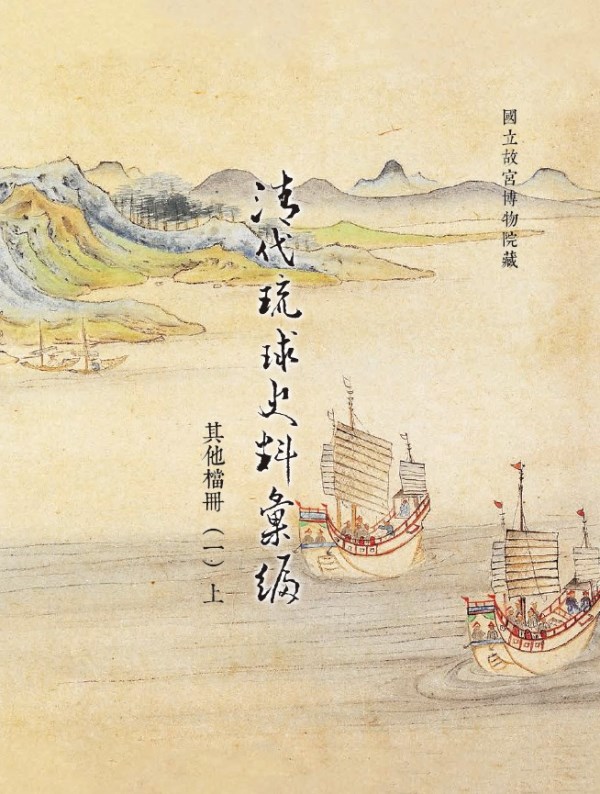 國立故宮博物院藏
清代琉球史料彙編
其他檔冊(一)上